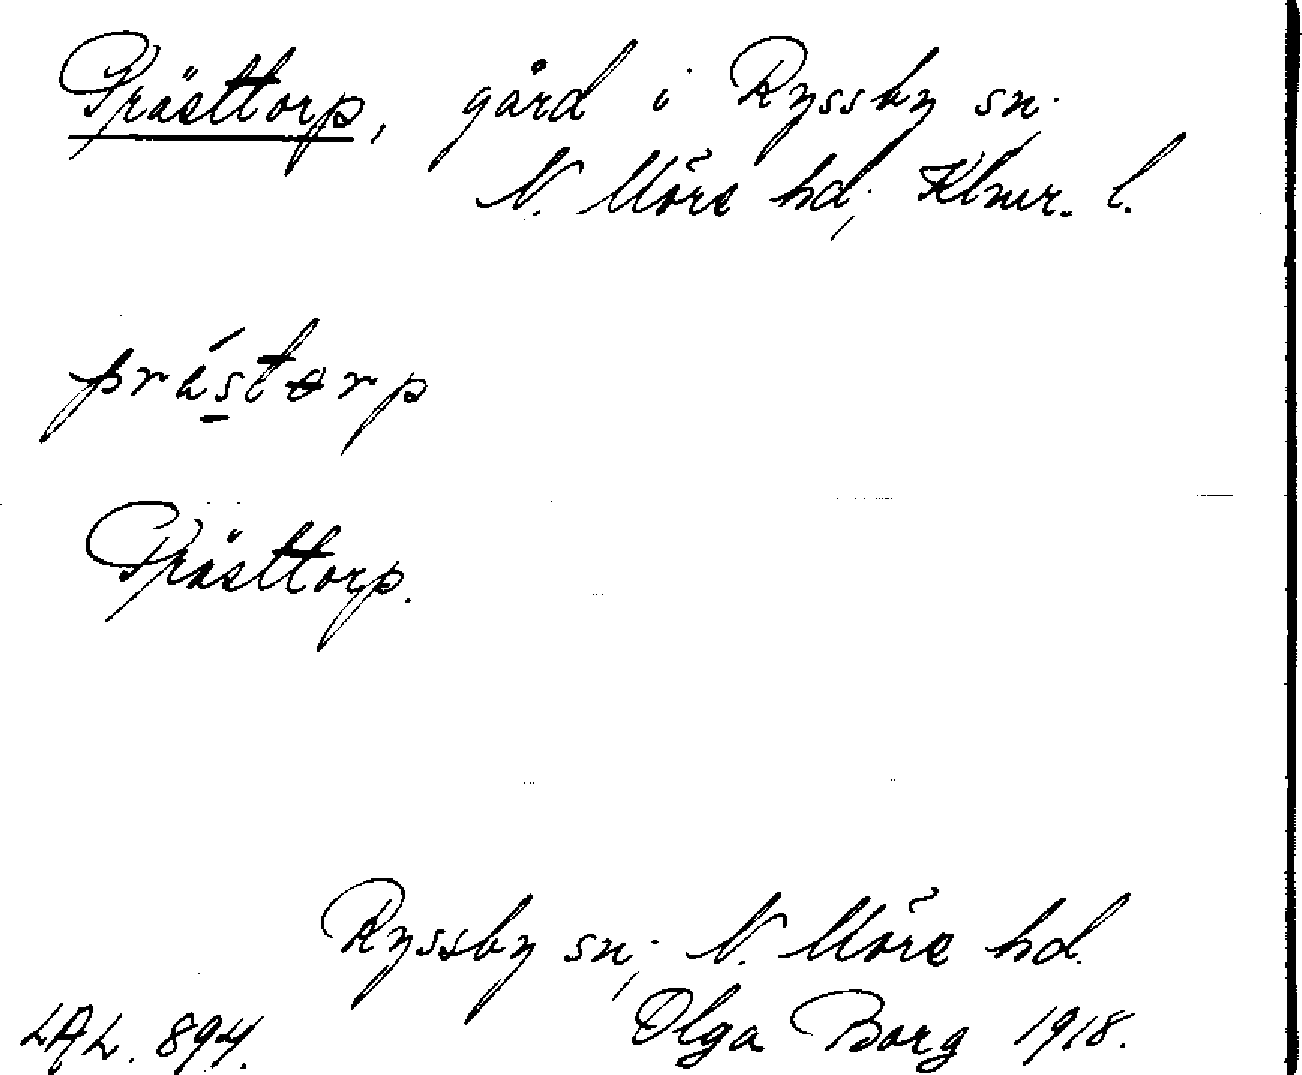 Prästtorp, gård i Ryssby sn.
N. Möre hd, Klmr. l.
prástorp
Prästtorp.
Ryssby sn, N. Möre hd.
LAL. 894. Olga Borg 1918.